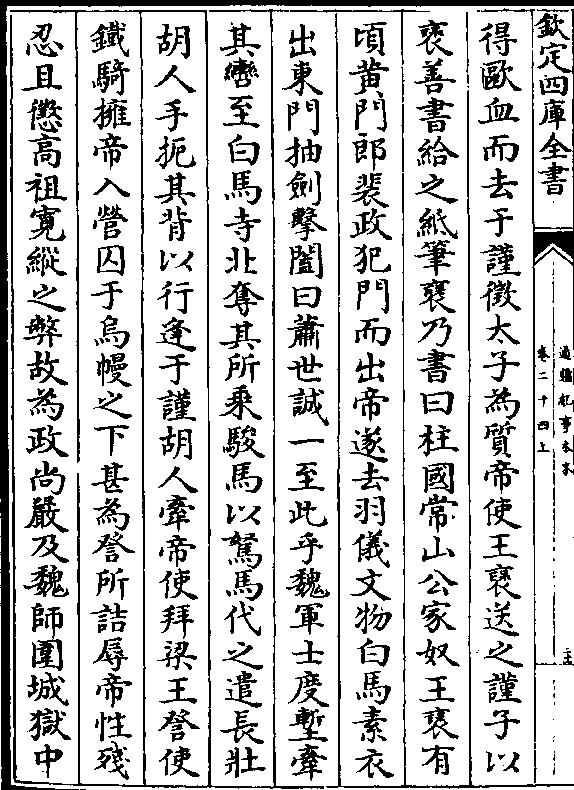 欽定四庫全書
通鑑紀事本末
卷二十四上
得歐血而去于謹徵太子為質帝使王褒送之謹子以
褒善書給之紙筆褒乃書曰柱國常山公家奴王褒有
頃黄門郎裴政犯門而出帝遂去羽儀文物白馬素衣
出東門抽劍擊闔曰蕭世誠一至此乎魏軍士度塹牽
其轡至白馬寺北奪其所乘駿馬以駑馬代之遣長壯
胡人手扼其背以行逢于謹胡人牽帝使拜梁王詧使
鐵騎擁帝入營囚于烏幔之下甚為詧所詰辱帝性殘
忍且懲高祖寛縱之弊故為政尚嚴及魏師圍城獄中